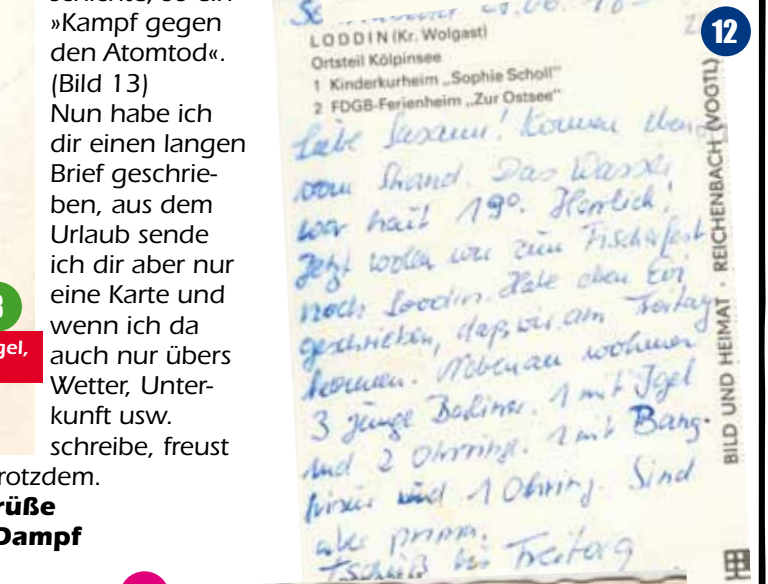 schichte, so ein
»Kampf gegen
den Atomtod«.
(Bild 13)
Nun habe ich
dir einen langen
Brief geschrie-
ben, aus dem
Urlaub sende
ich dir aber nur
eine Karte und
wenn ich da
auch nur übers
Wetter, Unter-
kunft usw.
schreibe, freust
rotzdem.
rüße
Dampf
gel,
12
LODDIN (Kr. Wolgast)
Ortsteil Kölpinsee
1 Kinderkurheim „Sophie Scholl"
2 FDGB-Ferienheim „Zur Ostsee"
Liebe Susann! Kommen
vom Strand. Das Wasser
war heut 19°. Herrlich!
Jetzt wollen wir zum Fischerfest
nach Loddin. Habe eben
geschrieben, daß wir am Freitag
kommen. Nebenan wohnen
3 junge Berliner. 1 mit Igel
und 2 Ohrringe. 1 mit
und 1 Ohrring. Sind
aber prima.
Tschüß bis Freitag
BILD UND HEIMAT · REICHENBACH (VOGTL)